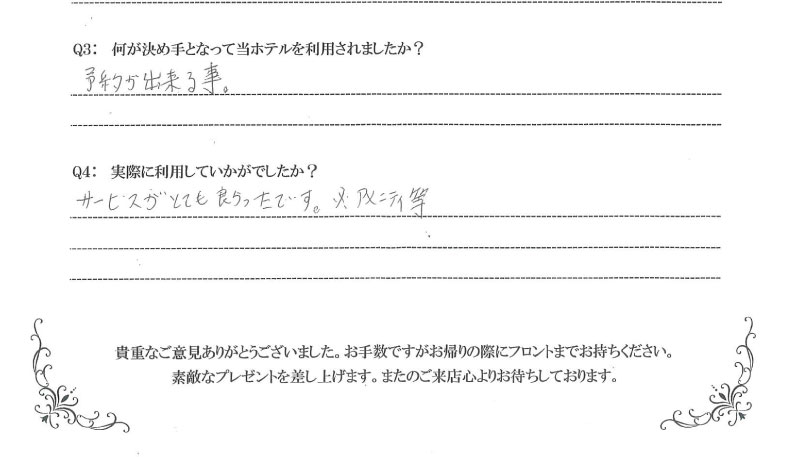 Q3： 何が決め手となって当ホテルを利用されましたか？
予約が出来る事。
Q4： 実際に利用していかがでしたか？
サービスがとても良かったです。※アメニティ等
貴重なご意見ありがとうございました。お手数ですがお帰りの際にフロントまでお持ちください。
素敵なプレゼントを差し上げます。またのご来店心よりお待ちしております。